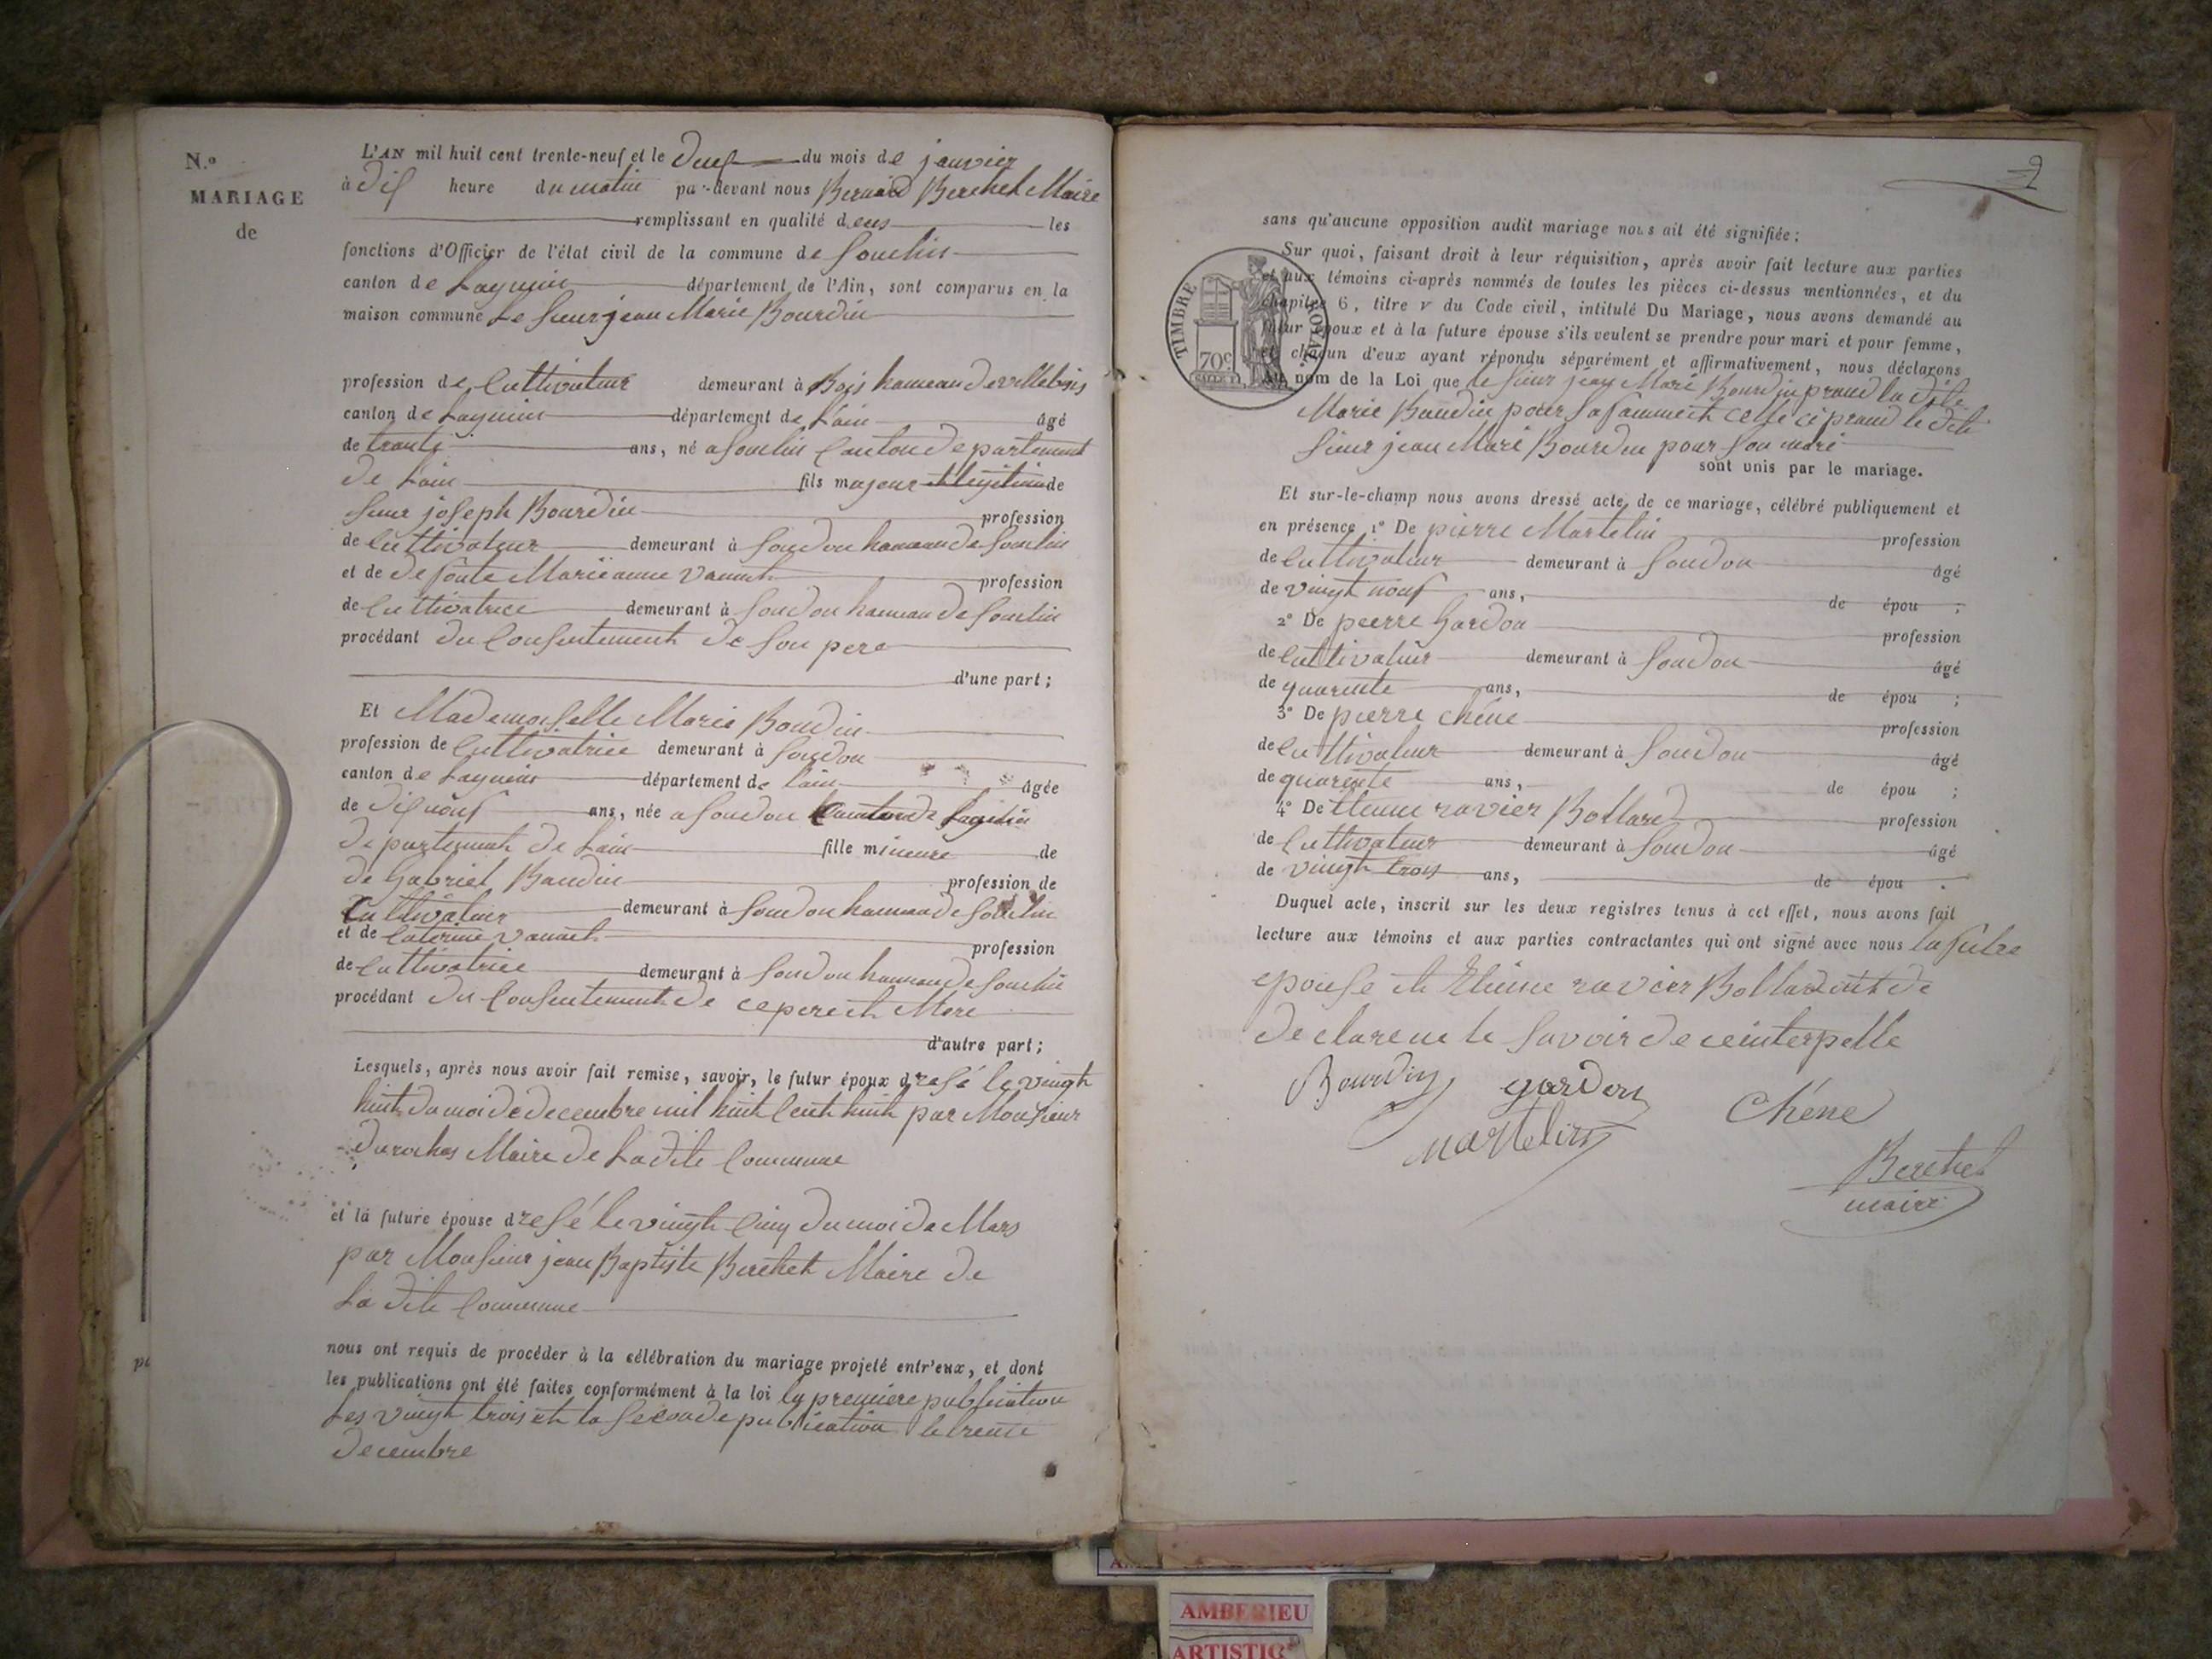 N.º
MARIAGE
de
L'AN mil huit cent trente-neuf et le deuf du mois de janvier
à dis heure du matin par-devant nous Bernard Berthet Maire
remplissant en qualité dens les
fonctions d'Officier de l'état civil de la commune de Souclin
canton de Lagnieu département de l'Ain, sont comparus en la
maison commune Le sieur jean Marie Bourdin
profession de Cultivateur demeurant à Bois hameau de villebois
canton de Lagnieu département de Lain âgé
de trante ans, né a Souclin Canton departement
de Lain fils majeur et legitime de
sieur joseph Bourdin profession
de Cultivateur demeurant à Soudon hameau de Souclin
et de defonte Marieanne vannet profession
de Cultivatrice demeurant à Soudon hameau de Souclin
procédant du Consentement de son pere
d'une part;
Et Mademoiselle Marie Baudin
profession de Cultivatrice demeurant à Soudon
canton de Lagnieu département de Lain âgée
de disnouf ans, née a Soudon Canton de Lagnieu
departement de Lain fille mineure de
de Gabriel Baudin profession de
Cultivateur demeurant à Soudon hameau de Souclin
et de Caterine vannet profession
de Cultivatrice demeurant à Soudon hameau de Souclin
procédant du Consentement de ce pere et Mere
d'autre part;
Lesquels, après nous avoir fait remise, savoir, le futur époux dresé le vingt
huit du moi de decembre mil huit Cent huit par Monsieur
duroches Maire de Ladite Commune
et la future épouse dresé le vingt Cinq du moi de Mars
par Monsieur jean Baptiste Berthet Maire de
La dite Commune
nous ont requis de procéder à la célébration du mariage projeté entr'eux, et dont
les publications ont été faites conformément à la loi la premiere publication
Les vingt trois et la seconde publication le trente
decembre
2
sans qu'aucune opposition audit mariage nous ait été signifiée;
Sur quoi, faisant droit à leur réquisition, après avoir fait lecture aux parties
et aux témoins ci-après nommés de toutes les pièces ci-dessus mentionnées, et du
chapitre 6, titre v du Code civil, intitulé Du Mariage, nous avons demandé au
futur époux et à la future épouse s'ils veulent se prendre pour mari et pour femme,
et chacun d'eux ayant répondu séparément et affirmativement, nous déclarons
au nom de la Loi que le sieur jean Marie Bourdin prand la dite
Marie Baudin pour sa famme et celle ci prand le dit
sieur jean Marie Bourdin pour son mari
sont unis par le mariage.
TIMBRE ROYAL
70c
Et sur-le-champ nous avons dressé acte de ce mariage, célébré publiquement et
en présence 1º De pierre Martelin profession
de Cultivateur demeurant à Soudon âgé
de vingt nouf ans, de épou ;
2º De pierre Gardon profession
de Cultivateur demeurant à Soudon âgé
de quarente ans, de épou ;
3º De pierre Chêne profession
de Cultivateur demeurant à Soudon âgé
de quarente ans, de épou ;
4º De Etienne ravier Bollard profession
de Cultivateur demeurant à Soudon âgé
de vingt trois ans, de épou .
Duquel acte, inscrit sur les deux registres tenus à cet effet, nous avons fait
lecture aux témoins et aux parties contractantes qui ont signé avec nous
epouse et Etienne ravier Bollard de
declare ne le savoir de ce interpelle
Bourdin gardon Chêne
Martelin
Berthet
maire
AMBERIEU
ARTISTIQ